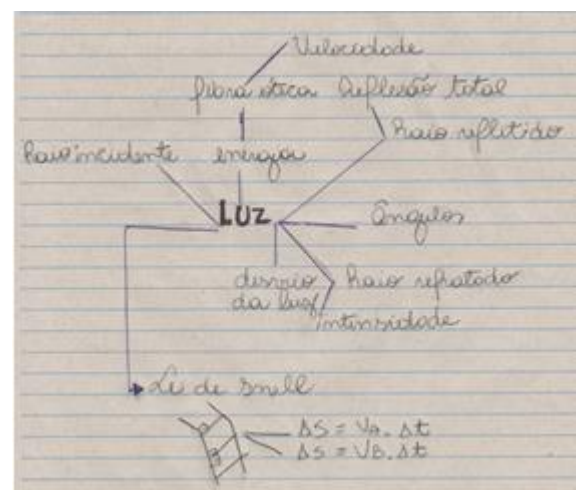 Velocidade
fibra ótica Reflexão total
Raio refletido
Raio incidente energia
LUZ
Ângulos
desvio Raio refratado
da luz
intensidade
Lei de Snell
ΔS = VA. Δt
ΔS = VB. Δt